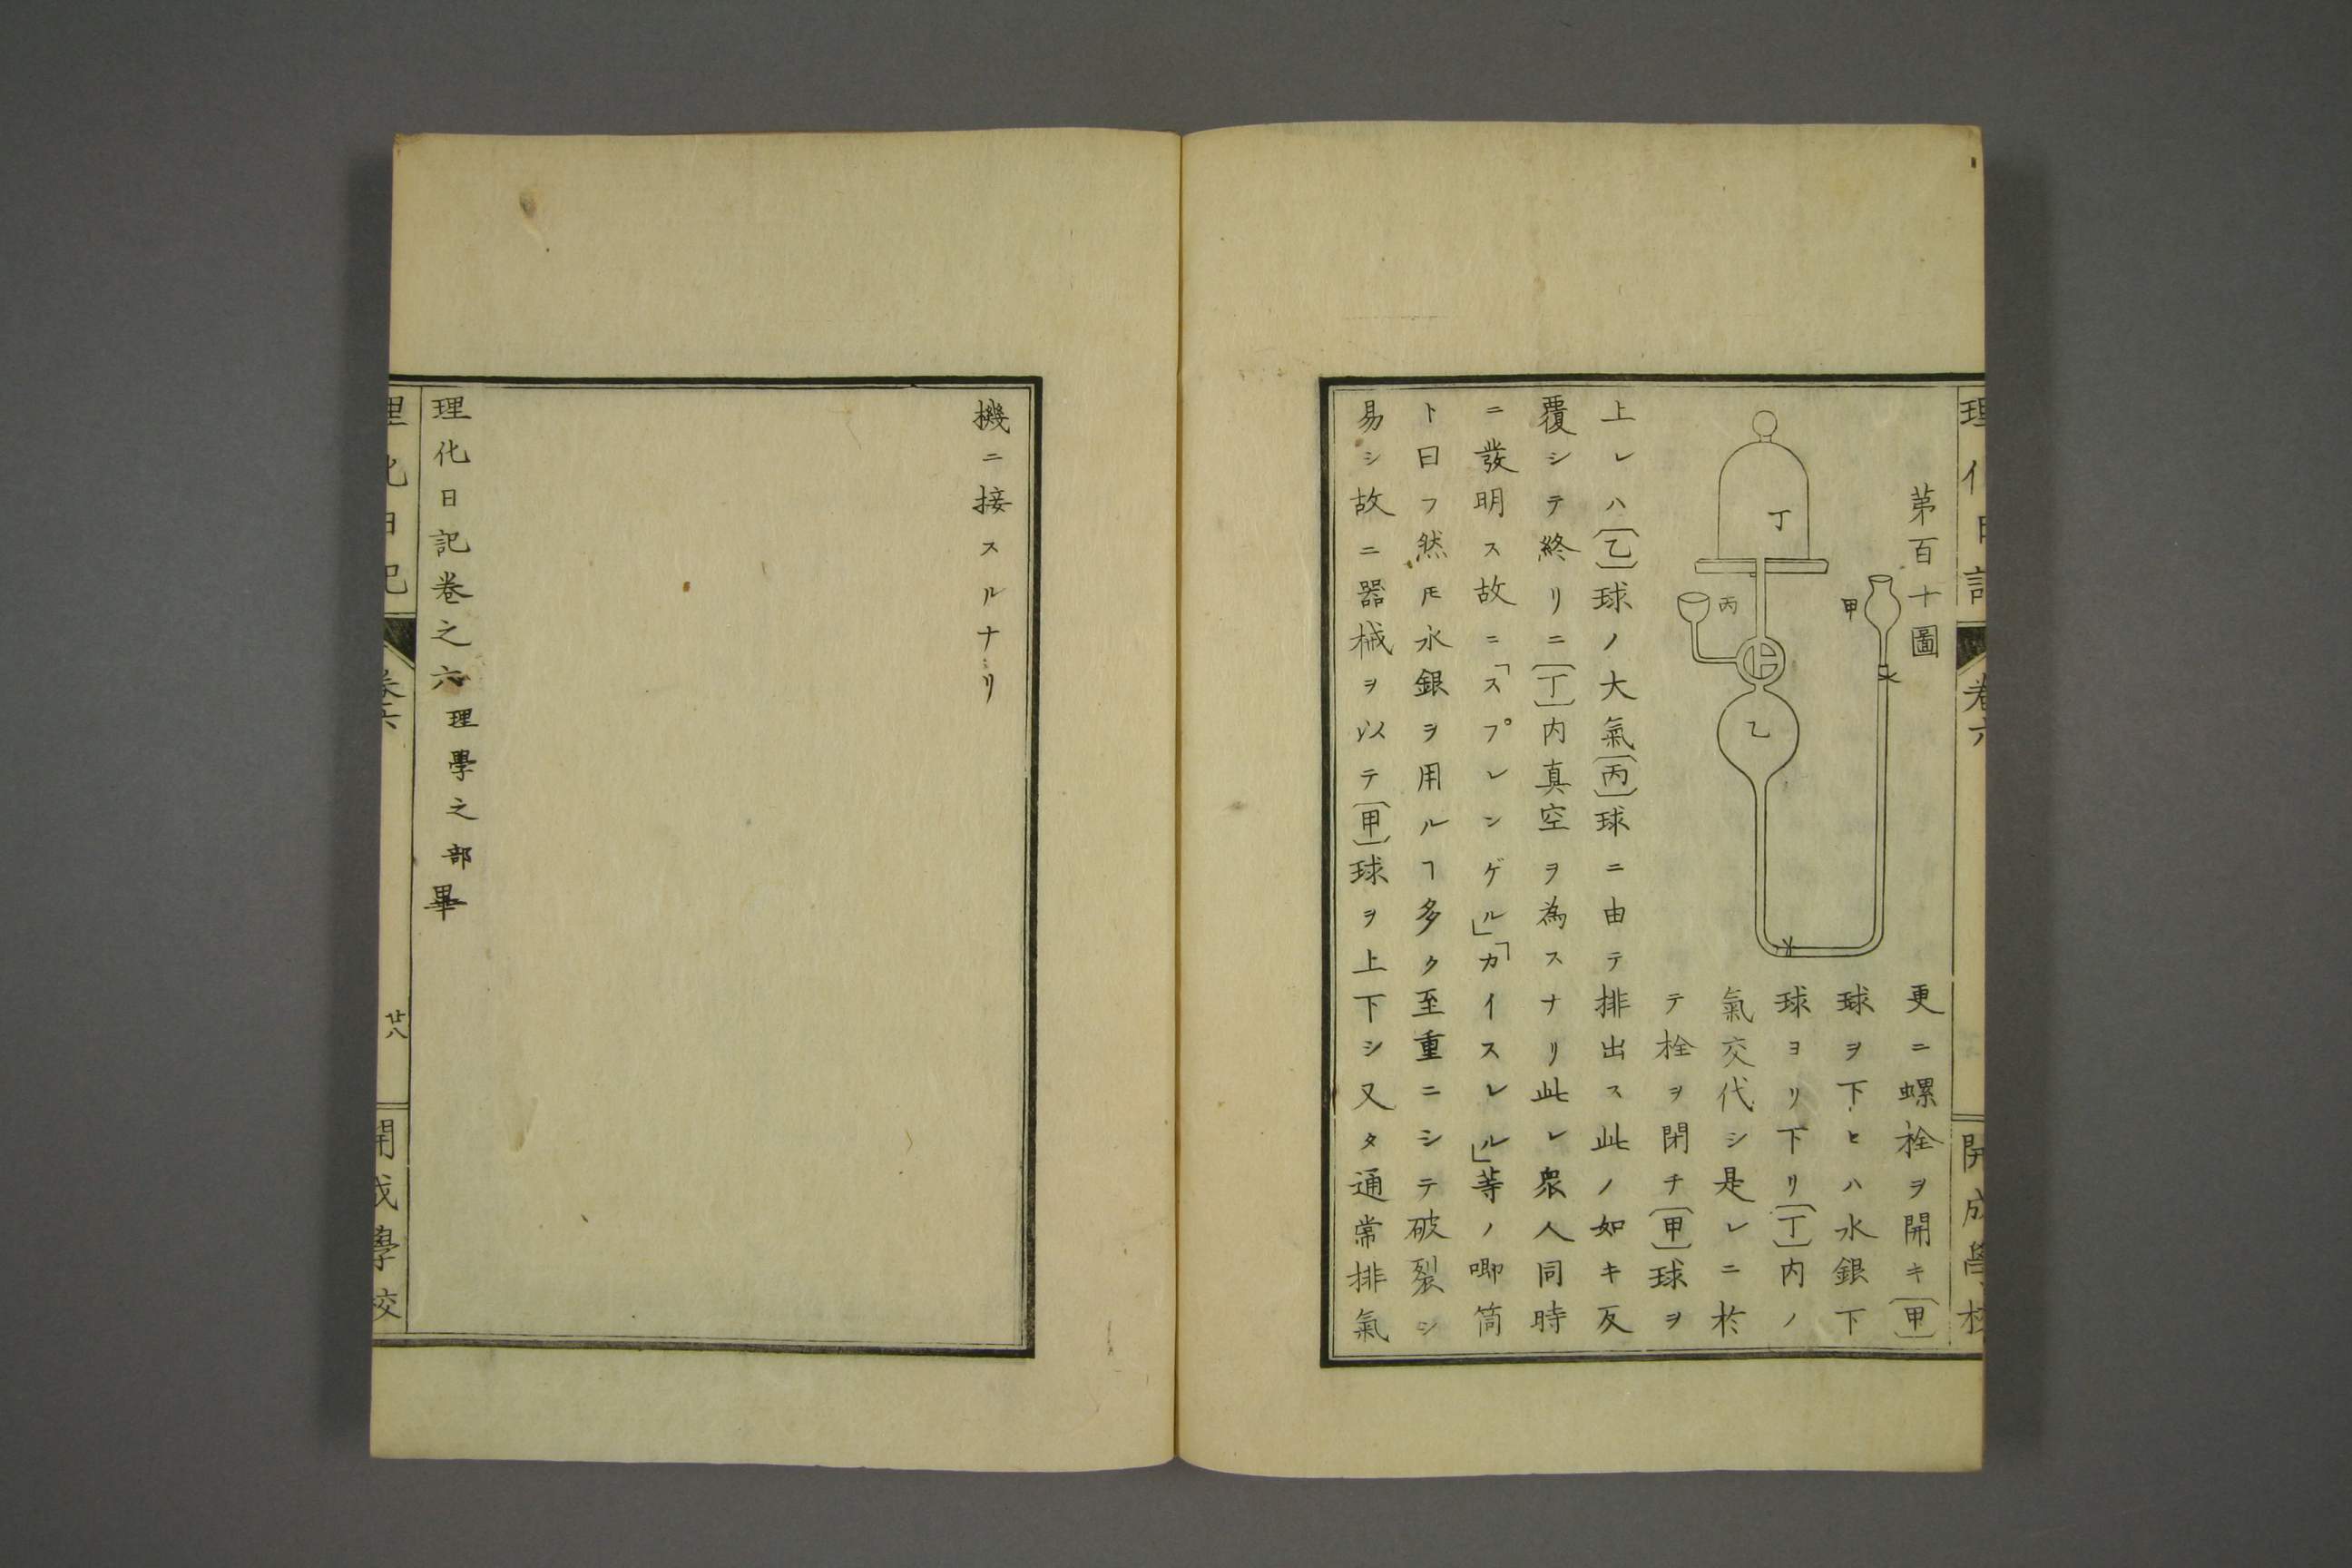 理化日記
巻六
開成學校
第百十圖
丁
丙
甲
乙
更ニ螺栓ヲ開キ〔甲〕
球ヲ下ヒハ水銀下
球ヨリ下リ〔丁〕内ノ
氣交代シ是レニ於
テ栓ヲ閉チ〔甲〕球ヲ
上レハ〔乙〕球ノ大氣〔丙〕球ニ由テ排出ス此ノ如キ反
覆シテ終リニ〔丁〕内真空ヲ為スナリ此レ衆人同時
ニ發明ス故ニ「スプレンゲル」「カイスレル」等ノ喞筒
ト曰フ然𪜈水銀ヲ用ルヿ多ク至重ニシテ破裂シ
易シ故ニ器械ヲ以テ〔甲〕球ヲ上下シ又タ通常排氣
機ニ接スルナリ
理化日記巻之六理學之部畢
理化日記
巻六
廿八
開成學校